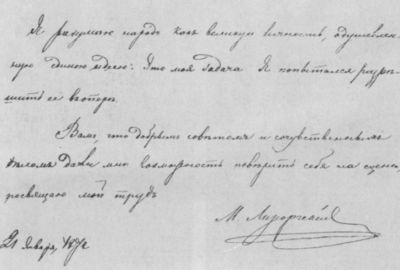 Я разумѣю народъ какъ великую личность, одушевлен-
ную единою идеею: Это моя задача Я попытался разрѣ-
шить ее въ оперѣ.
Вамъ, что добрымъ совѣтомъ и сочувственнымъ
дѣломъ дали мнѣ возможность повѣрить себя на сценѣ,
посвящаю мой трудъ
М. Мусоргскій
21 Января, 1874